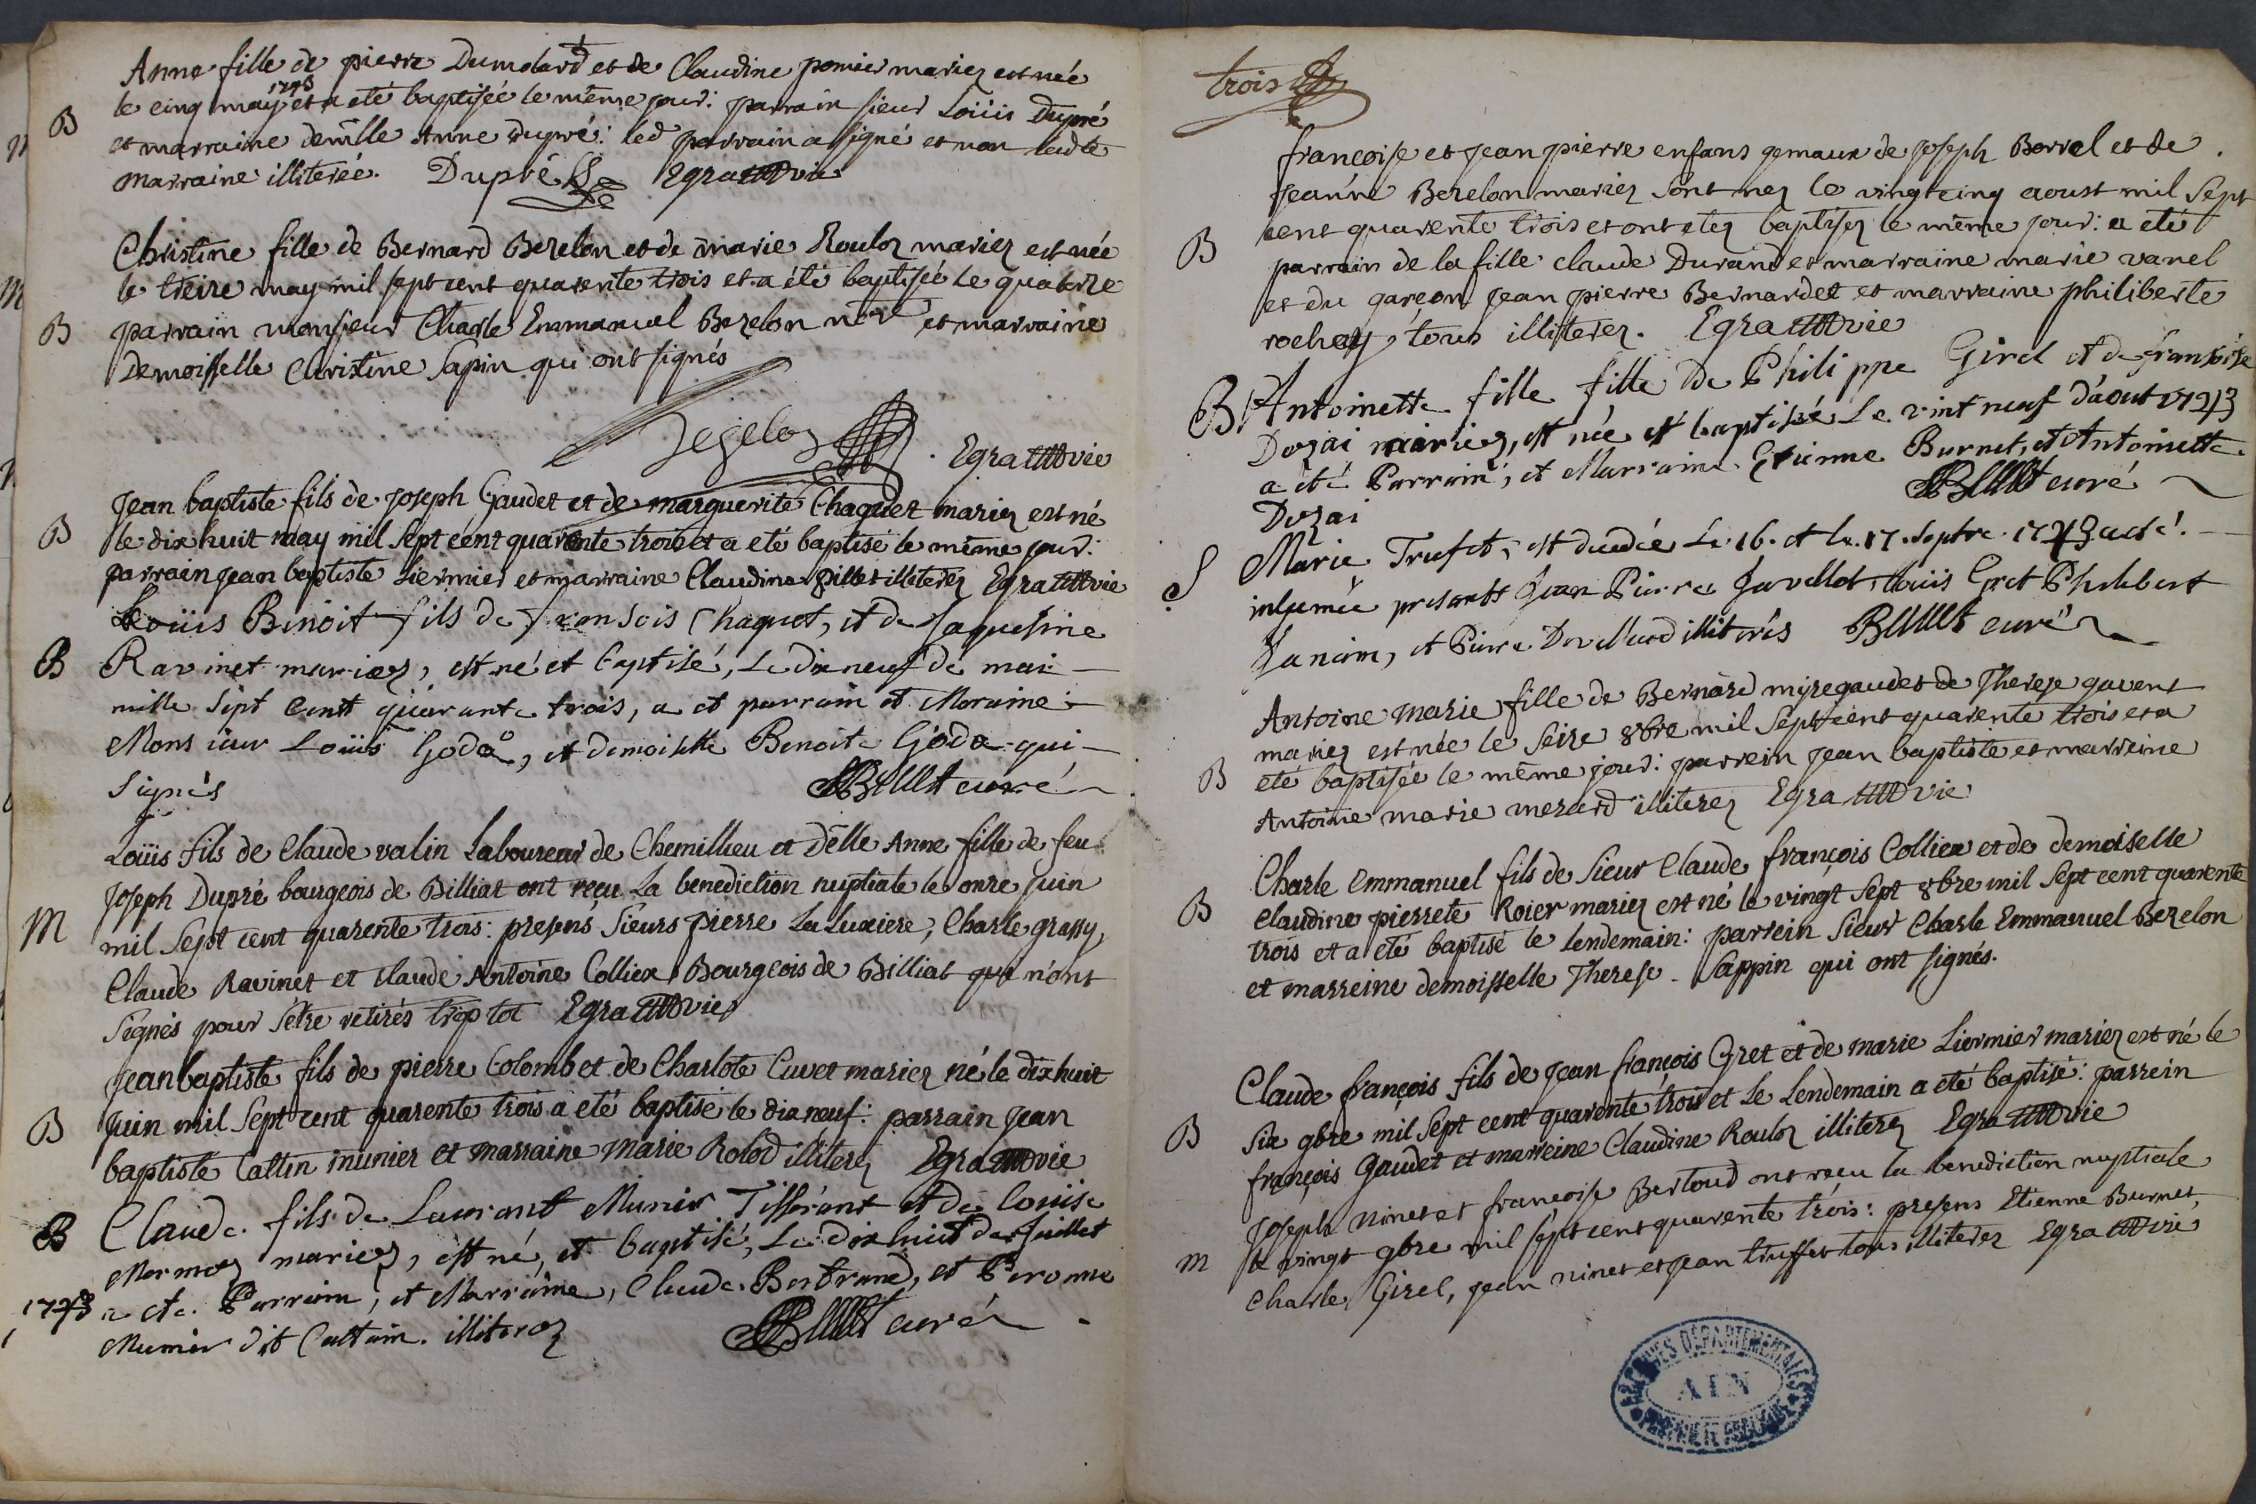 Anne fille de pierre Dumolard et de Claudine pomier mariez est née
1743
B le cinq may et a eté baptisée le même jour: parrain sieur Loüis Dupré
et marraine demlle Anne dupré: led parrain a signé et non ladte
marraine illiterée. Dupré Egra vie
Christine fille de Bernard Bezelon et de marie Rouloz mariez est née
le treize may mil sept cent quarente trois et a été baptisée le quatorze
B parrain monsieur Charle Emmanuel Bezelon nre et marraine
Demoisselle Christine Sapin qui ont signés
Bezelon Egra vie
Jean baptiste fils de Joseph Gaudet et de marguerite Chaquet mariez est né
B le dix huit may mil Sept cént quarente trois et a eté baptisé le même jour:
parrain Jean baptiste Liermier et marraine Claudine pillet illiterez Egra vie
Loüis Binoit fils de fransois Chaquet, et de Jaquesine
B Ravinet mariez, est né et baptisé, Le dixneuf de mai
mille sipt centt quarante trois, a et parrain et Moraine
Monsieur Loüis Goda, et demoiselle Benoite Goda qui
signés Billiet curé
Loüis fils de Claude valin Laboureur de Chemillieu et Délle Anne fille de feu
Joseph Dupré bourgeois de Billiat ont reçu La benediction nuptiale le onze juin
M mil Sept cent quarente trois: presens Sieurs pierre La Luxiere, Charle grassy,
Claude Ravinet et Claude Antoine Colliex Bourgeois de Billiat qui n'ont
Signés pour s'être retirés trop tot Egra vie
Jean baptiste fils de pierre Colomb et de Charlote Cuvet mariez né le dixhuit
B Juin mil Sept cent quarente trois a eté baptisé le dixneuf: parrain Jean
baptiste Cattin munier et marraine Marie Rolod illiterez Egra vie
B Claude fils de Laurant Munier Tisserant et de Louise
Mermez mariez, est né, et baptisé, Le dix huit de Juillet
1743 a ete Parrain, et Marraine, Claude Bertrand, et Peronne
Munier dit Cattain. illiterez Billiet curé
trois
françoise et Jean pierre enfans gemaux de Joseph Borrel et de
Jeanne Bezelon mariez sont nez le vingt cinq aoust mil Sept
B cent quarente trois et ont etez baptisez le même jour: a eté
parrain de la fille claude Durand et marraine marie vanel
et du garçon Jean pierre Bernardet et marraine philiberte
rochay, tous illiterez. Egra vie
B Antoinette fille fille de Philippe Girel et de fransoise
Dozai mariez, est née et baptisée Le vint neuf d'aout 1743
a été Parrain, et Marraine Etienne Burnet, et Antoinette
Dozai Billiet curé
S Marie Trufet, est dicedée Le 16. et le 17. septre. 1743 a eté
inhumée presants Jean Pierre Javellot, Loüis Gret Philibert
Janin, et Pierre Du Mard illiterés Billiet curé
Antoine marie fille de Bernard miregaude et de Therese gavent
mariez est née le Seize 8bre mil Sept cent quarente trois et a
B eté baptisée le même jour: parrein Jean baptiste et marreine
Antoine marie merard illiterez Egra vie
Charle Emmanuel fils de Sieur Claude françois Colliex et de demoiselle
B Claudine pierrete Roier mariez est né le vingt Sept 8bre mil Sept cent quarente
trois et a eté baptisé le lendemain: parrein Sieur Charle Emmanuel Bezelon
et marreine demoisselle Therese Sappin qui ont signés.
Claude françois fils de Jean françois Gret et de marie Liermier mariez est né le
B Six 9bre mil Sept cent quarente trois et Le Lendemain a eté baptisé: parrein
françois Gaudet et marreine Claudine Rouloz illiterez Egra vie
Joseph Ninet et françoise Bertoud ont reçu la benediction nuptiale
M le vingt 9bre mil sept cent quarente trois: presens Etienne Burnet,
Charle Girel, Jean ninet et Jean truffet tous illiterez Egra vie
ARCHIVES DÉPARTEMENTALES
AIN